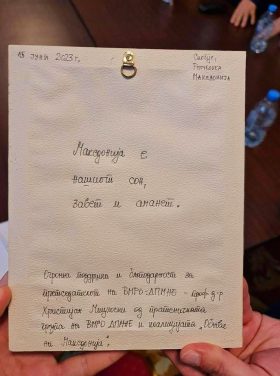 15 јуни 2023 г,
Скопје,
Република
Македонија
Македонија е
нашиот сон,
завет и аманет.
Огромна поддршка и благодарност за
претседателот на ВМРО-ДПМНЕ - проф. д-р
Христијан Мицкоски од пратеничката
група на ВМРО-ДПМНЕ и коалицијата „Обнова
на Македонија".